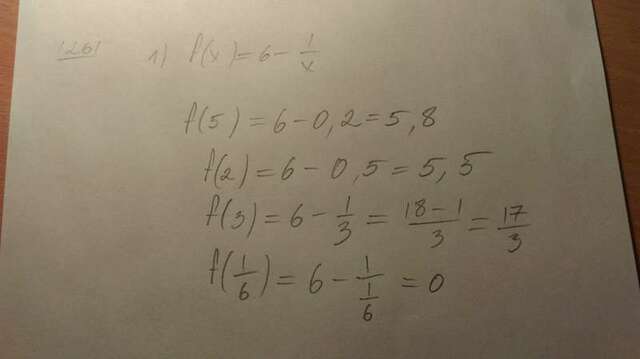 1261 1) f(x) = 6 - 1/x
f(5) = 6 - 0,2 = 5,8
f(2) = 6 - 0,5 = 5,5
f(3) = 6 - 1/3 = (18 - 1)/3 = 17/3
f(1/6) = 6 - 1/(1/6) = 0